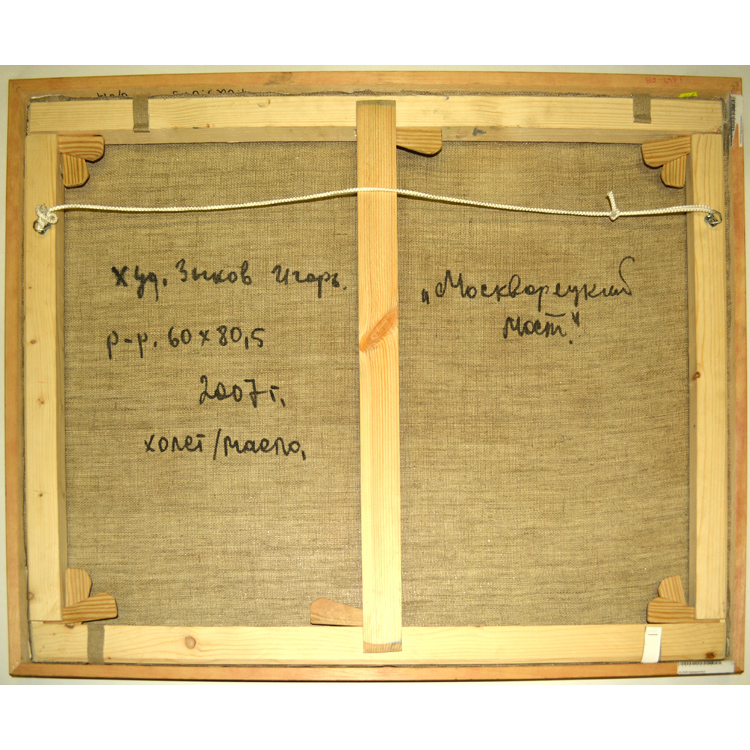 худ. Зыков Игорь.
р-р. 60 х 80,5
2007 г.
холст/масло,
„Москворецкий
мост."